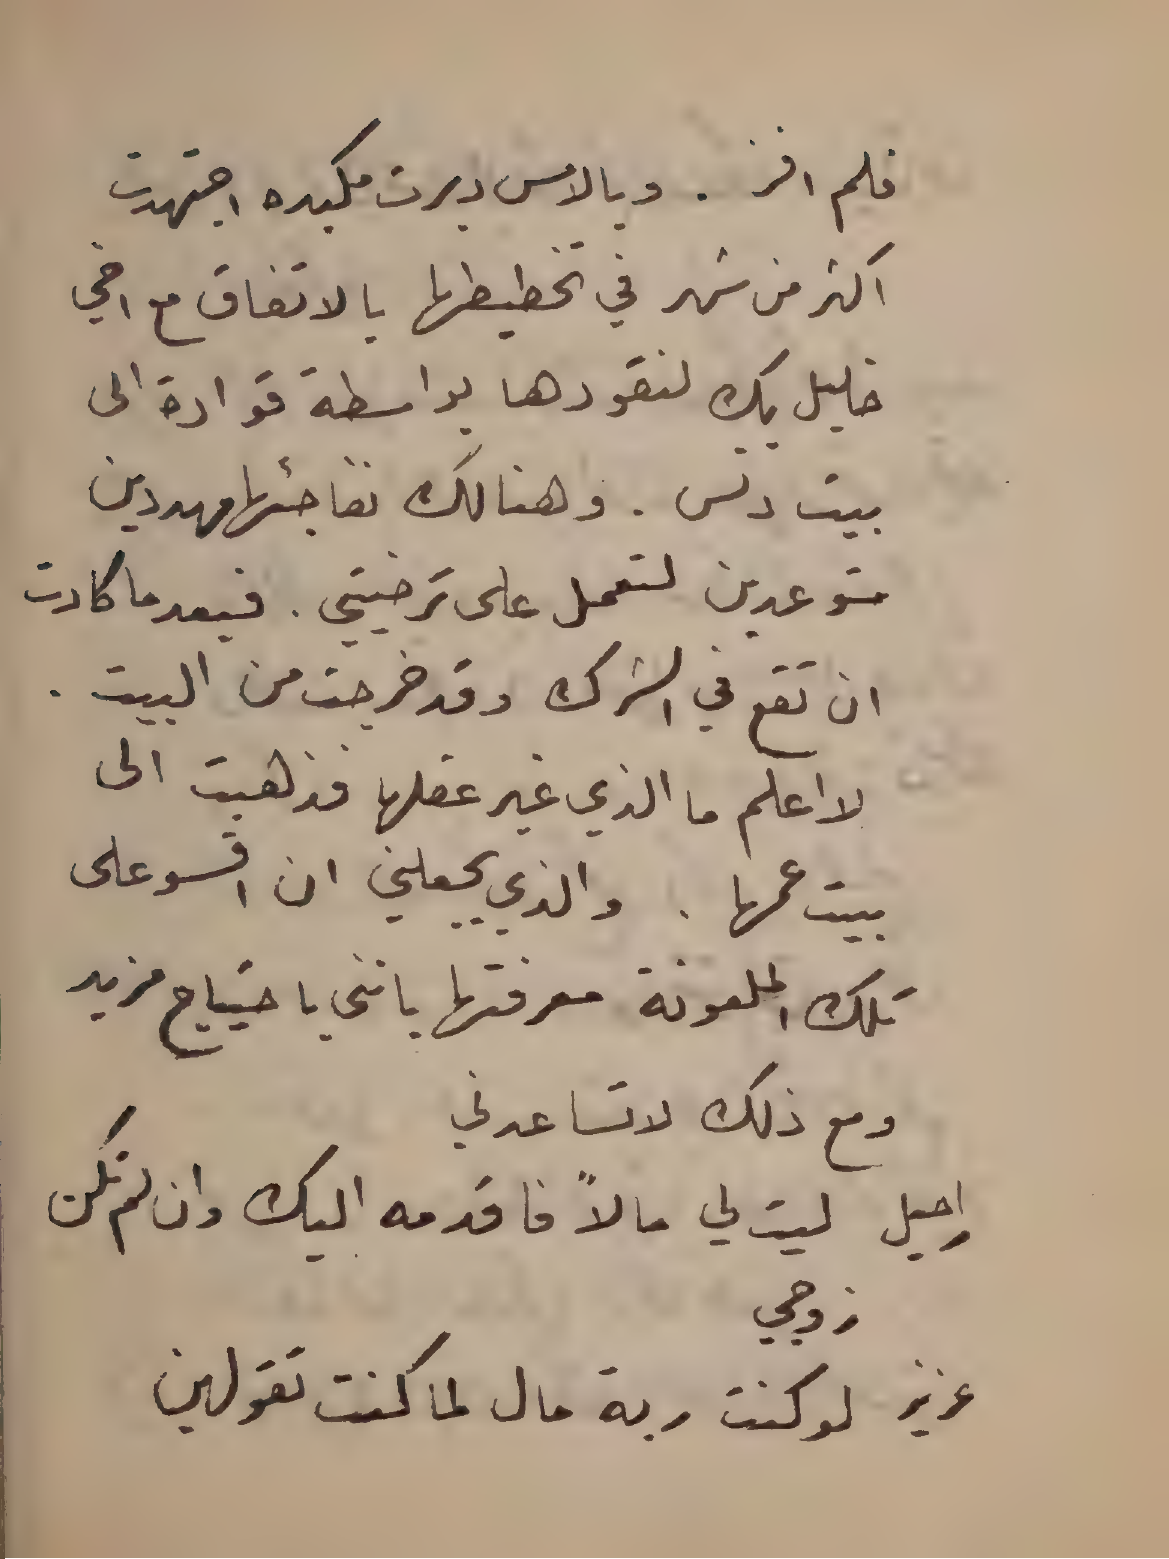 فلم افز . وبالامس دبرت مكيده اجتهدت
اكثر من شهر في تخطيطها بالاتفاق مع اخي
خليل بك لنقودها بواسطة قوادة الى
بيت دنس . وهنالك نفاجئها مهددين
متوعدين لتعمل على ترضيتي . فبعد ما كادت
ان تقع في الشرك وقد خرجت من البيت .
لا اعلم ما الذي غير عقلها فذهبت الى
بيت عمها . والذي يجعلني ان اقسو على
تلك الملعونة معرفتها بانني باحتياج مزيد
ومع ذلك لا تساعدني
راحيل ليت لي مالاً فاقدمه اليك وان لم تكن
زوجي
عزيز لو كنت ربة مال لما كنت تقولين